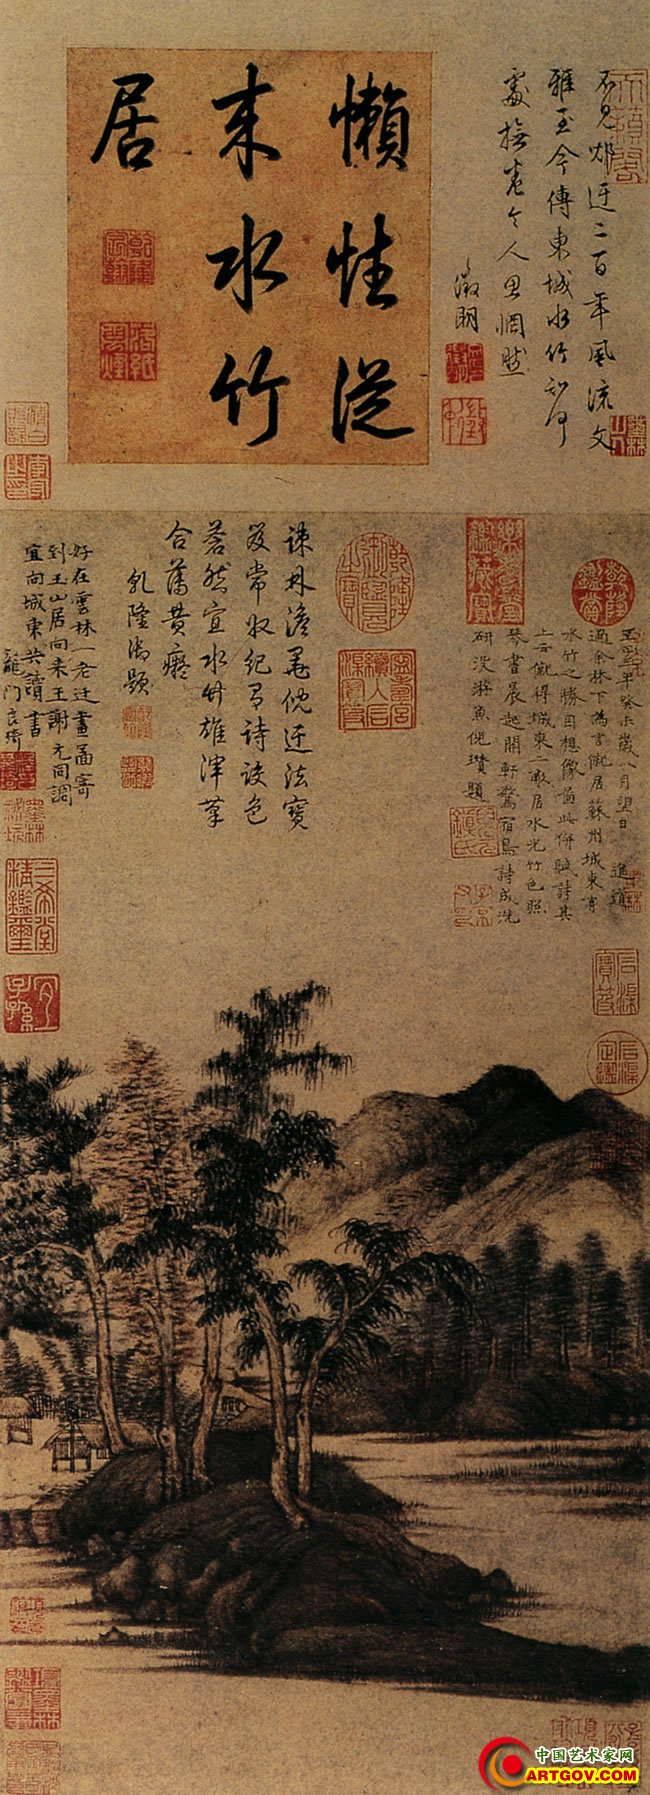 懶性從
来水竹
居
乾隆宸翰
落紙雲煙
不見倪迂二百年風流文
雅至今傳東城水竹知何
處撫卷令人思惘然
徵明
至正三年癸未歲八月望日進道
過余林下為言僦居蘇州城東有
水竹之勝因想像圖此併賦詩其
上云僦得城東二畝居水光竹色照
琴書晨起開軒驚宿鳥詩成洗
研没游魚倪瓚題
疎林澹墨倪迂法寶
笈常收紀有詩設色
蒼然宜水竹雄渾
合舊黄癡
乾隆御題
好在雲林一老迂畫圖寄
到玉山居向来王謝尤同調
宜向城東共讀書
龍門良琦
三希堂精鑑璽
宜子孫
中国艺术家网
ARTGOV.COM